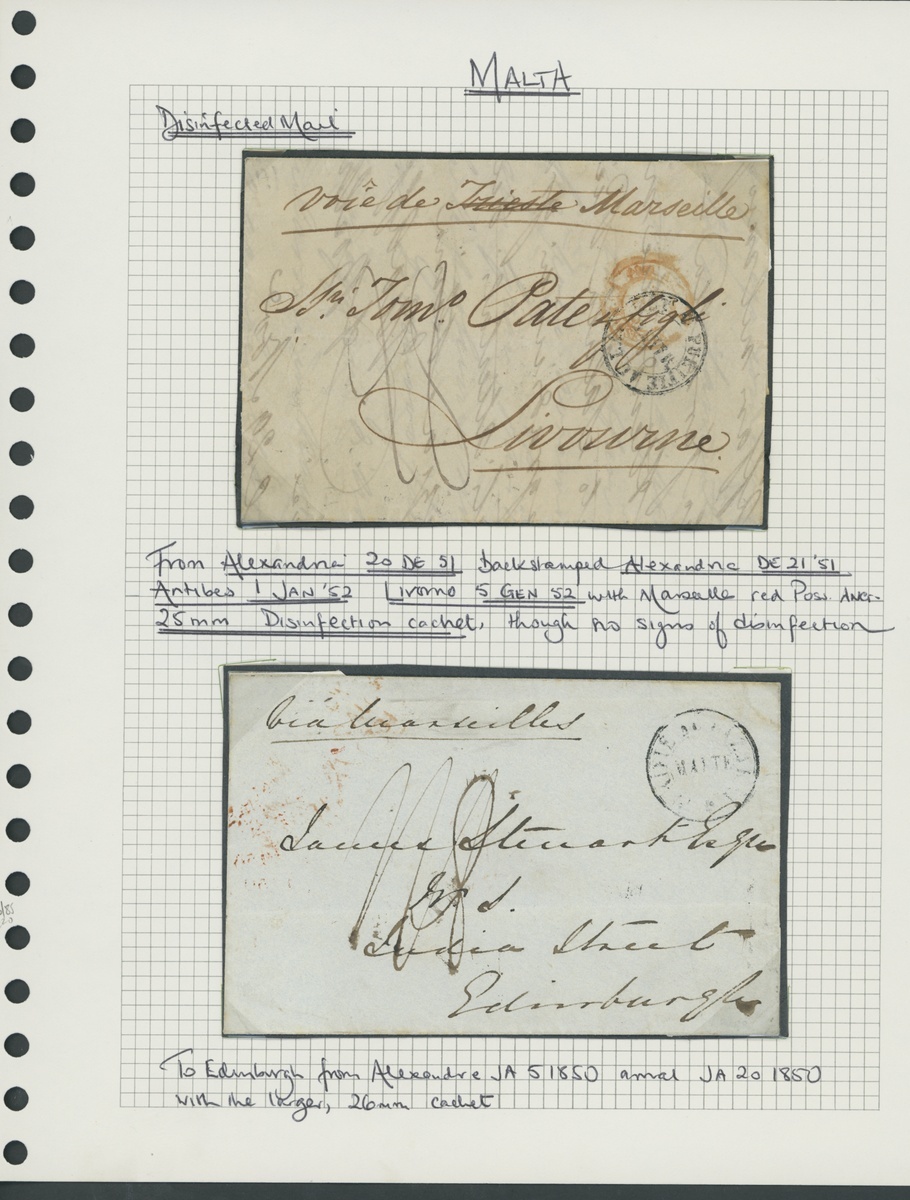 MALTA
Disinfected Mail
voie de Trieste Marseille
Livourne
PURIFIE AU LAZ
From Alexandria 20 DE 51 backstamped Alexandria DE 21 '51
Antibes 1 JAN '52 Livorno 5 GEN 52 with Marseille red Poss. ANGL-
25mm Disinfection cachet, though no signs of disinfection
Via Marseilles
MALTE
James Stewart Esqr
India Street
Edinburgh
To Edinburgh from Alexandre JA 5 1850 arrival JA 20 1850
with the larger, 26mm cachet